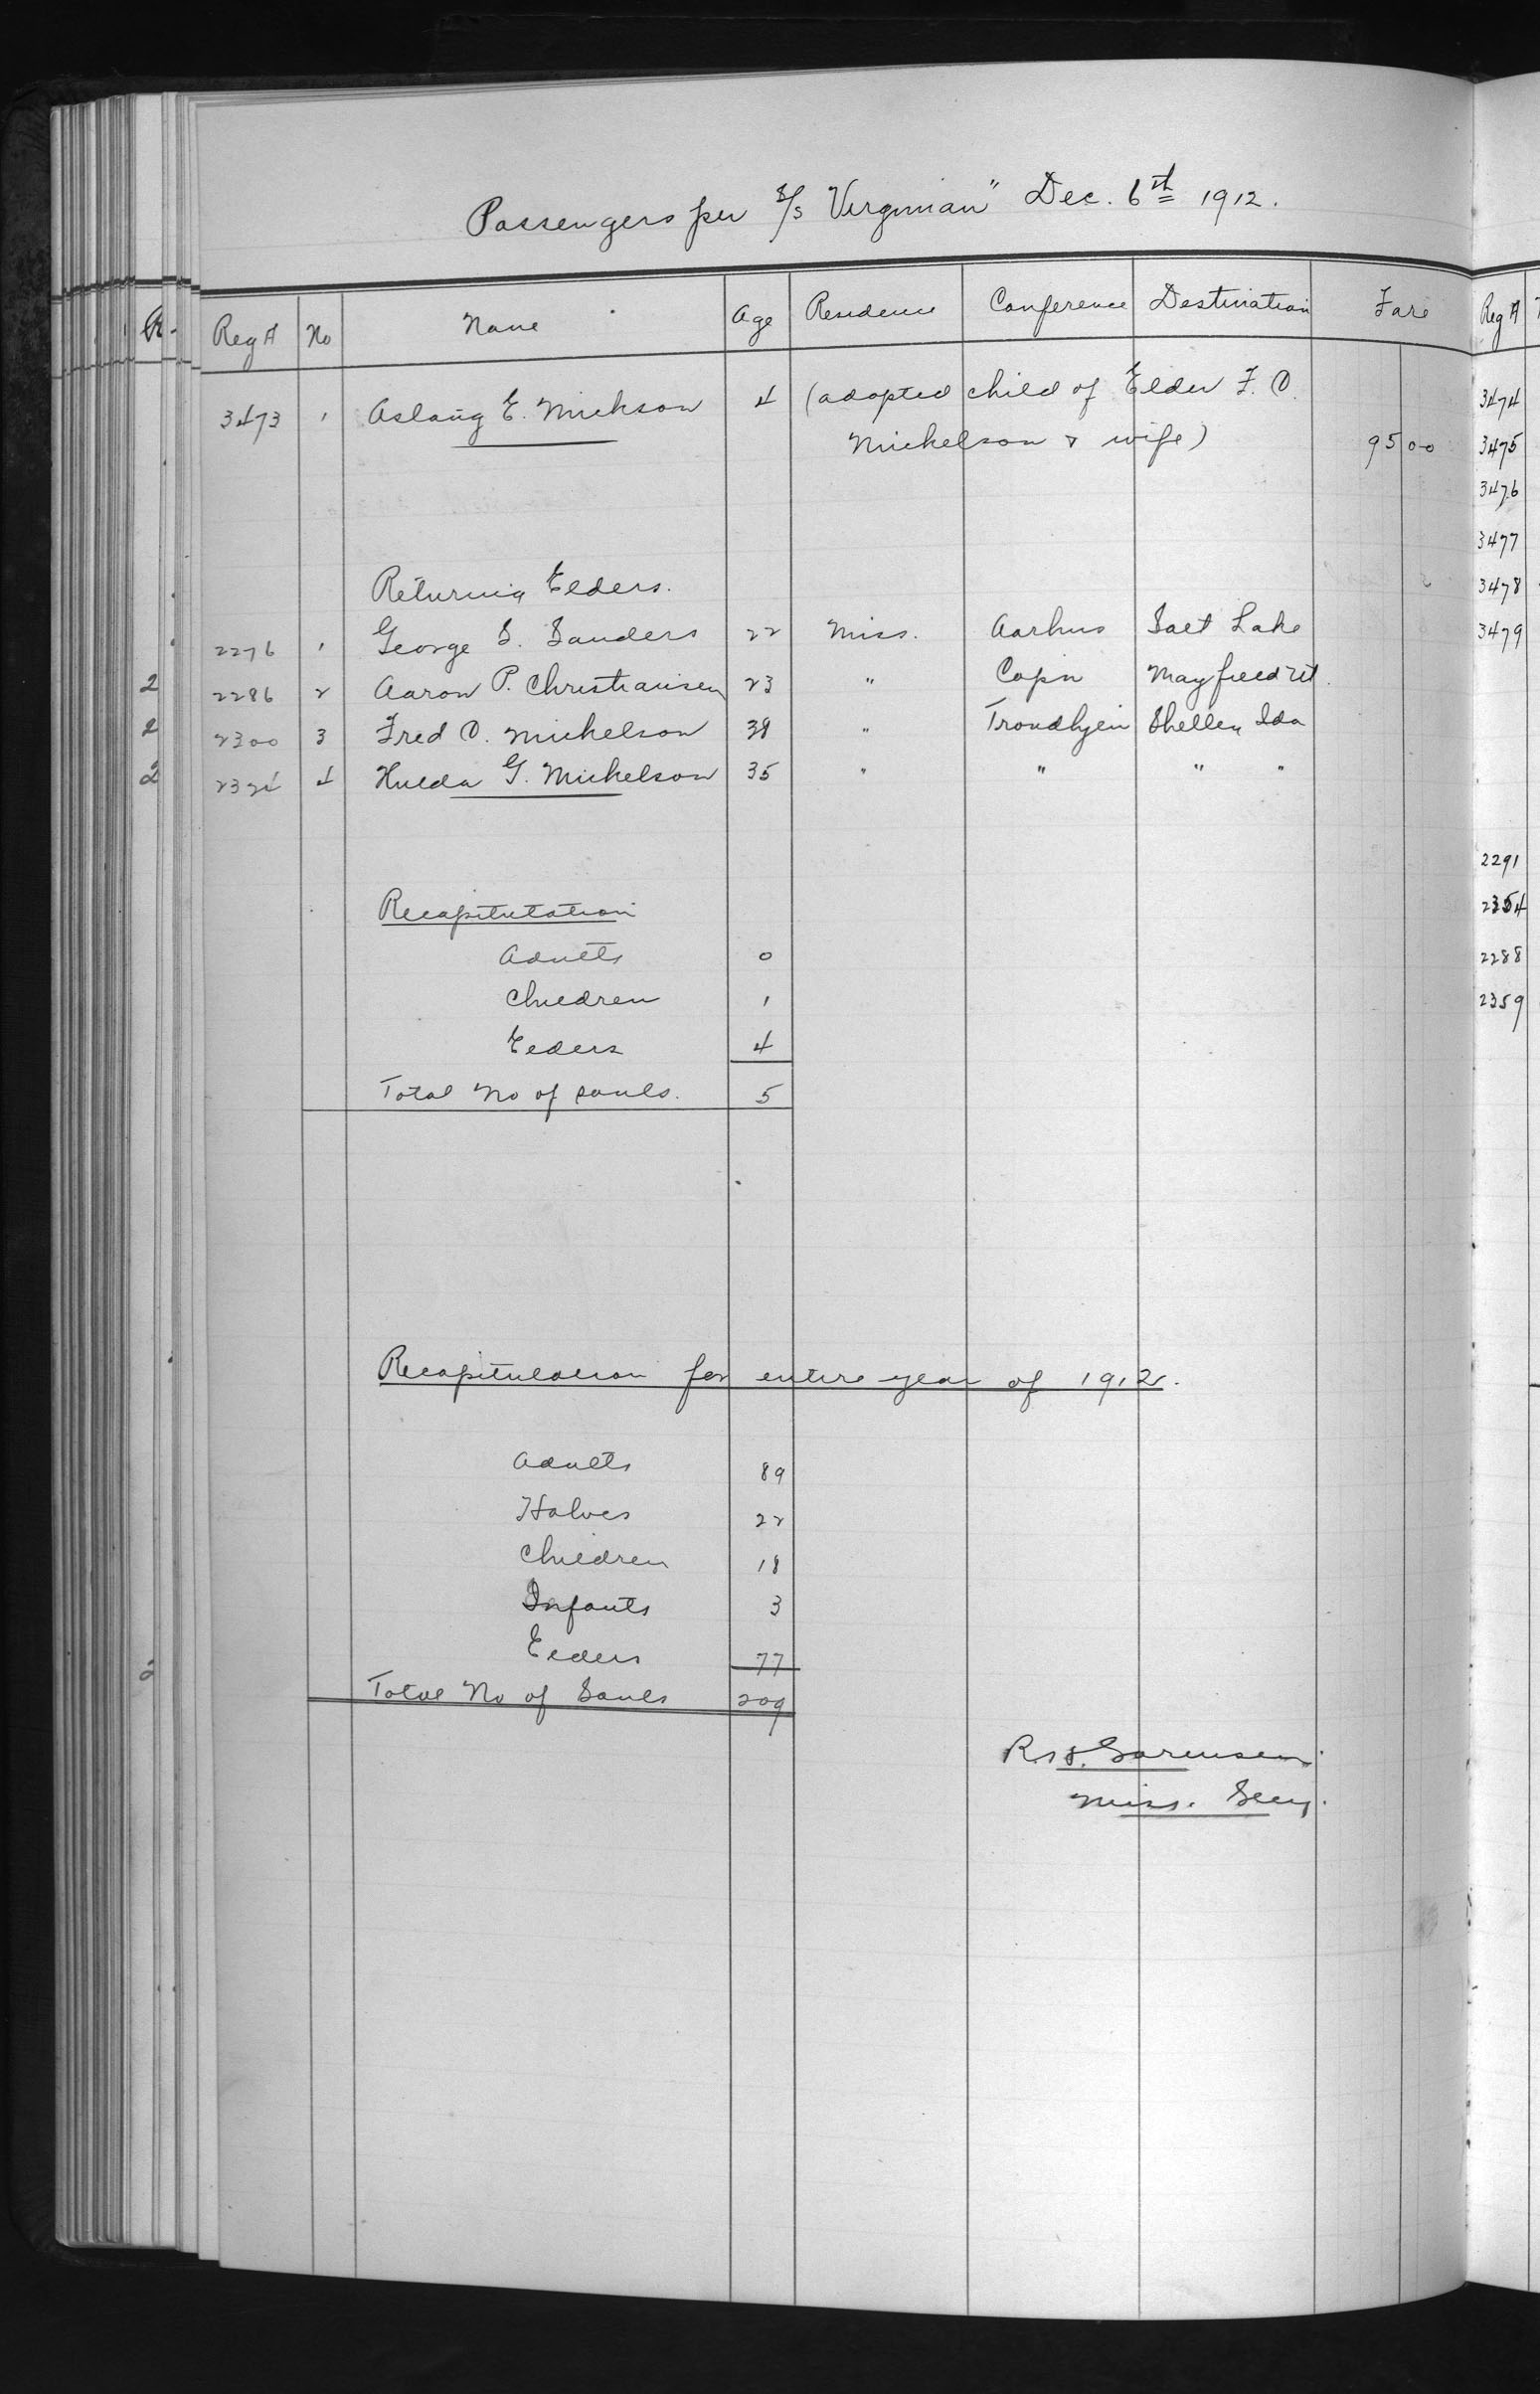 Passengers per S/S Virginian" Dec. 6th 1912.
Reg A No Name Age Residence Conference Destination Fare
3473 1 Aslaug E. Mickson 4 (adopted child of Elder F. O.
Mickelson & wife) 95 00
Returning Elders.
2276 1 George S. Sanders 22 Miss. Aarhus Salt Lake
2286 2 Aaron P. Christiansen 23 " Copn Mayfield Ut.
2300 3 Fred O. Mickelson 38 " Trondhjem Shelley Ida
4 Hulda G. Mickelson 35 " " " "
Recapitulation
Adults 0
Children 1
Elders 4
Total No of souls. 5
Recapitulation for entire year of 1912.
Adults 89
Halves 22
Children 18
Infants 3
Elders 77
Total No of Souls 209
Sorensen
Miss. Secy.
Reg A
3474
3475
3476
3477
3478
3479
2291
2354
2288
2359